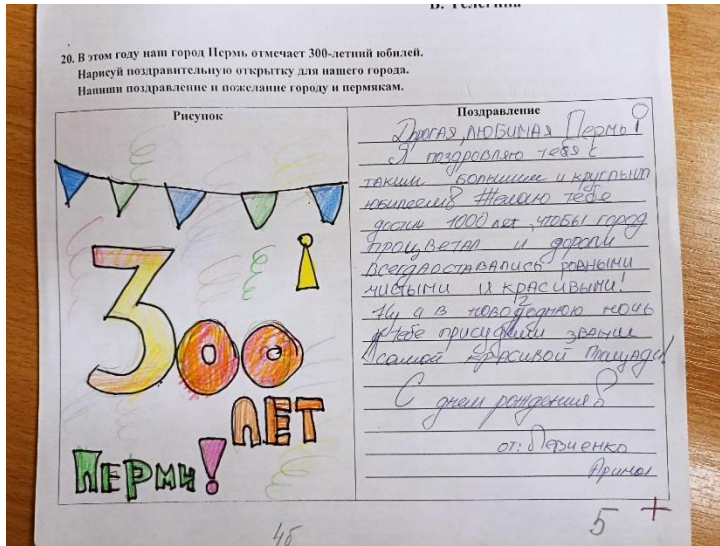 В. Телегина
20. В этом году наш город Пермь отмечает 300-летний юбилей.
Нарисуй поздравительную открытку для нашего города.
Напиши поздравление и пожелание городу и пермякам.
Рисунок
300
ЛЕТ
ПЕРМИ!
Поздравление
Дорогая, ЛЮБИМАЯ Пермь!
Я поздровляю тебя с
таким большим и круглым
юбилеем! Желаю тебе
достич 1000 лет, чтобы город
процветал и дороги
всегда оставались ровными
чистыми и красивыми!
Ну а в новогоднюю ночь
тебе присудили звание
самой красивой площади!
С днем рождения!
от:
Арина
4б
5 +